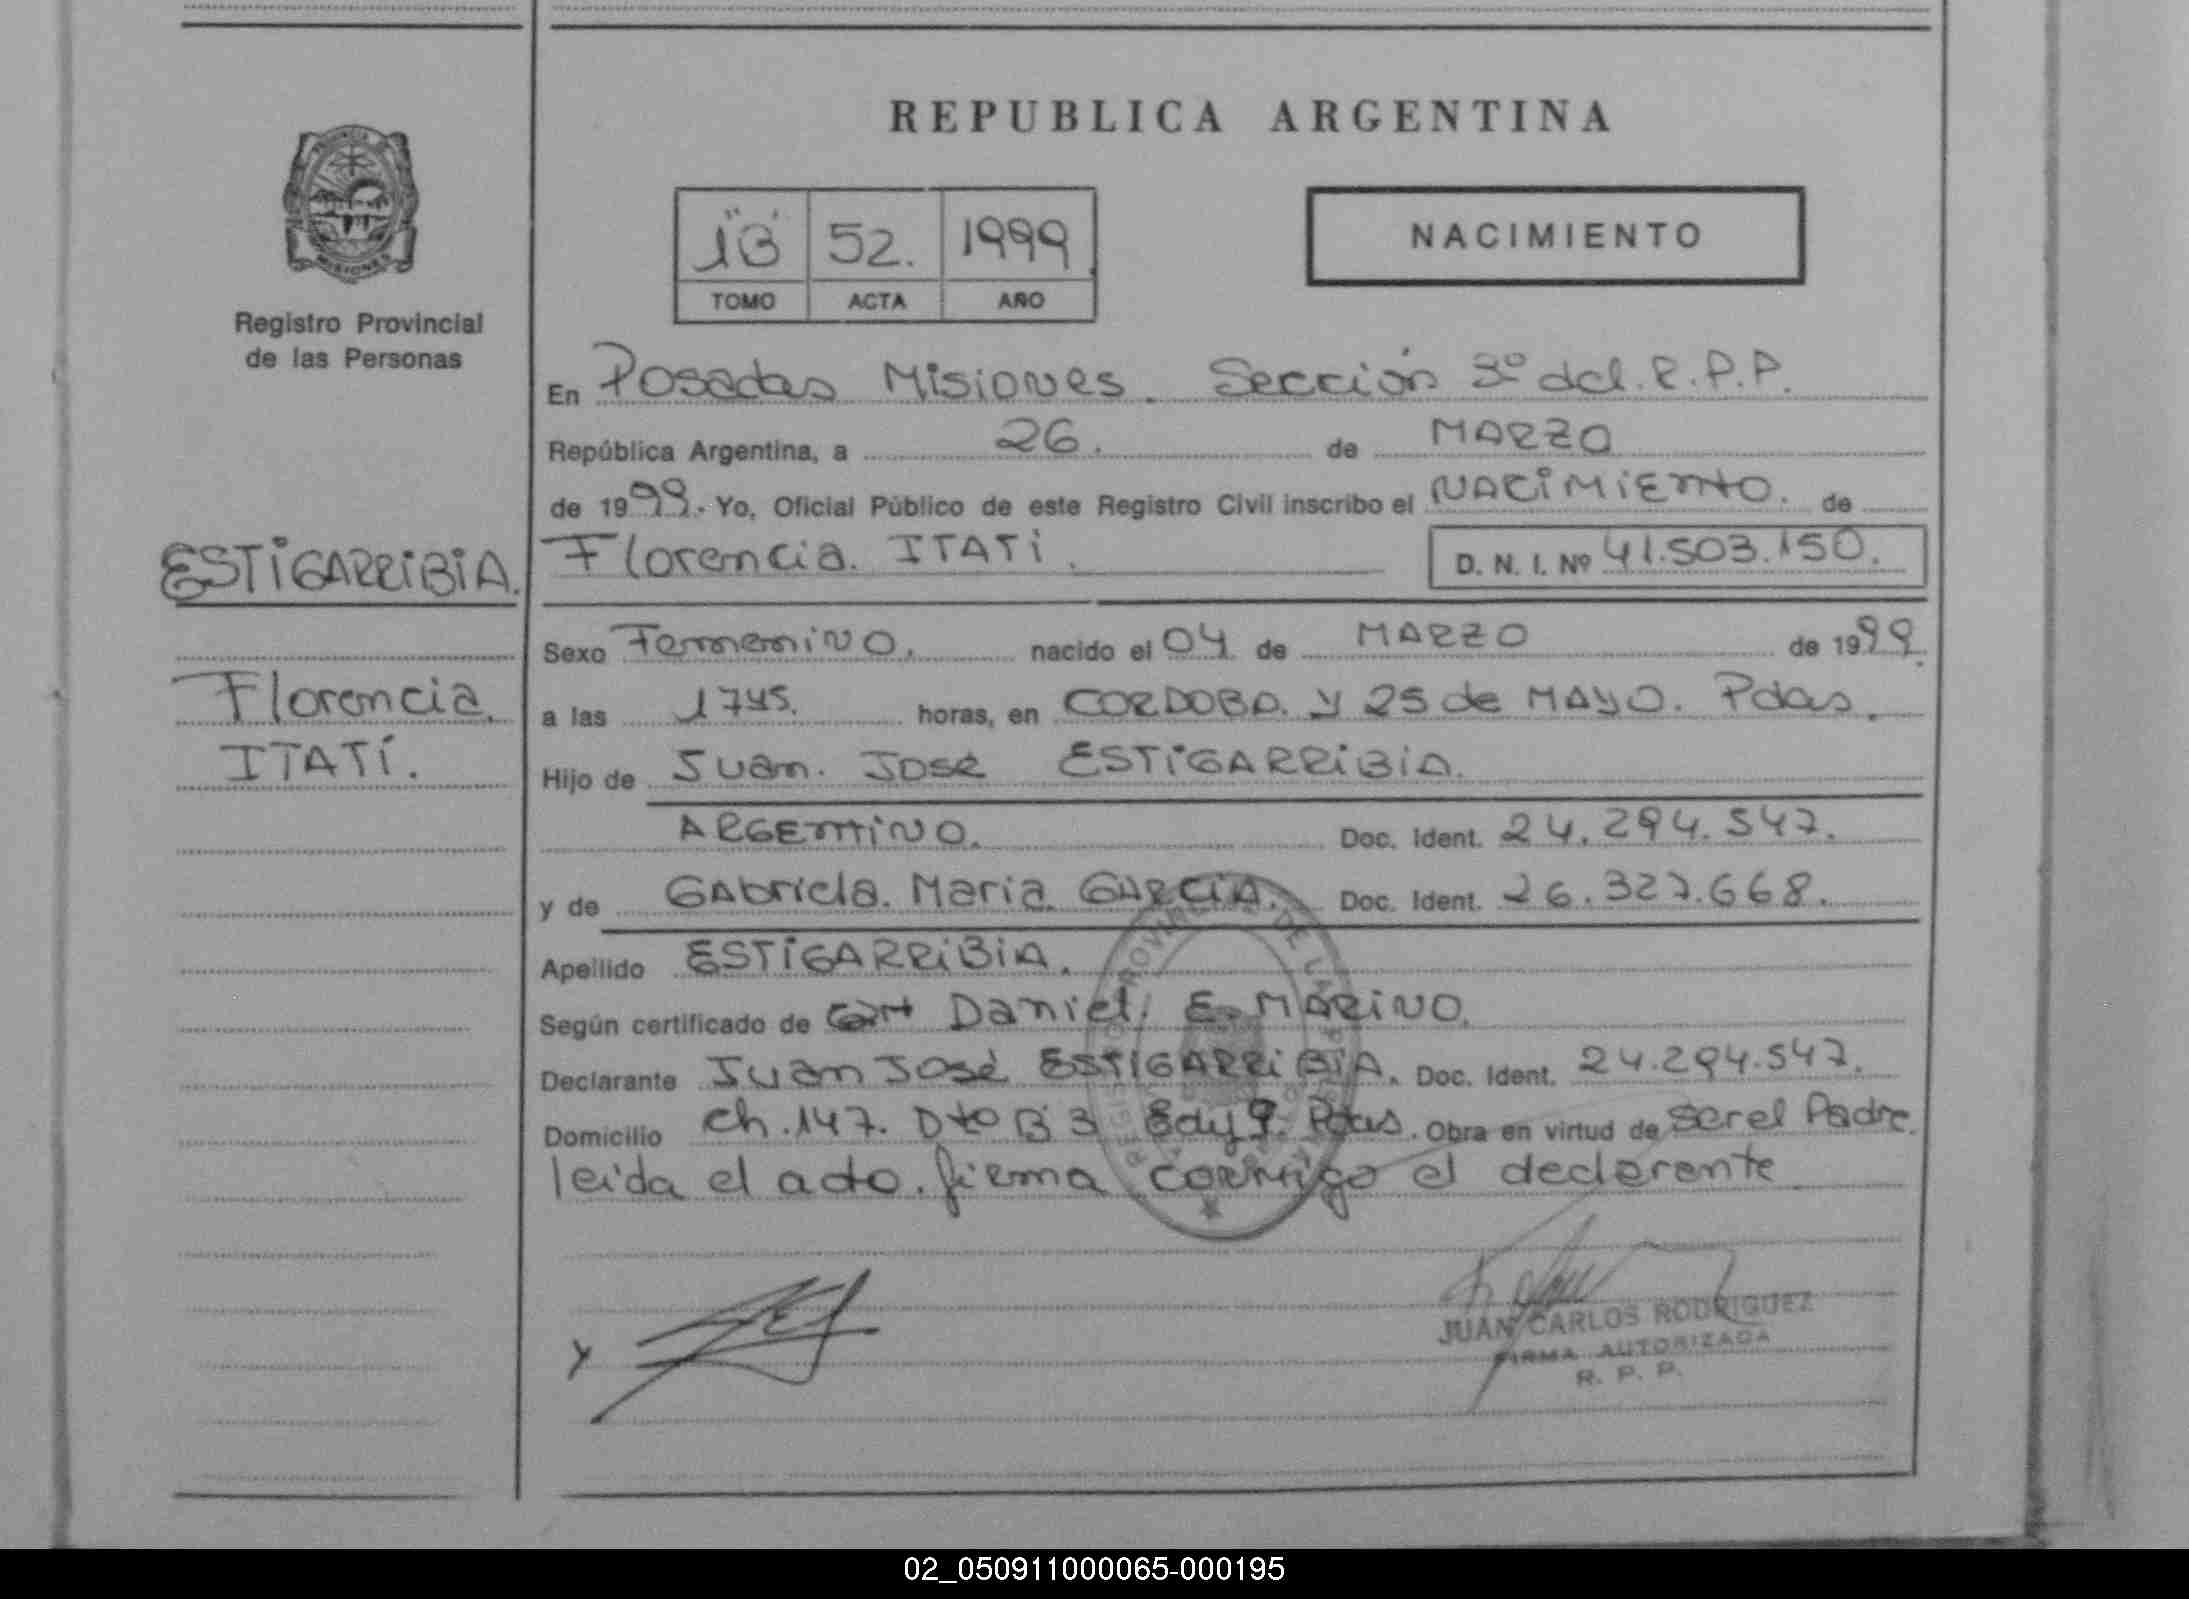 REPUBLICA ARGENTINA
PROVINCIA
MISIONES
Registro Provincial
de las Personas
1"B" 52. 1999
TOMO ACTA AÑO
NACIMIENTO
En Posadas Misiones. Sección 3º del. R.P.P.
República Argentina, a 26. de MARZO
de 1999. Yo, Oficial Público de este Registro Civil inscribo el NACIMIENTO. de
ESTIGARRIBIA.
Florencia. ITATI. D. N. I. Nº 41.503.150.
Sexo Femenino. nacido el 04 de MARZO de 1999.
Florencia.
ITATÍ.
a las 1745. horas, en CORDOBA. y 25 de MAYO. Pdas.
Hijo de Juan. José ESTIGARRIBIA.
ARGENTINO. Doc. Ident. 24.294.547.
y de GAbriela. Maria. GARCIA. Doc. Ident. 26.327.668.
Apellido ESTIGARRIBIA.
Según certificado de Daniel. E. MARINO.
Declarante Juan José ESTIGARRIBIA. Doc. Ident. 24.294.547.
Domicilio ch. 147. Dto B 3 Pdas. Obra en virtud de ser el Padre.
leida el acto. firma conmigo el declarante
JUAN CARLOS RODRIGUEZ
FIRMA AUTORIZADA
R. P. P.
02_050911000065-000195